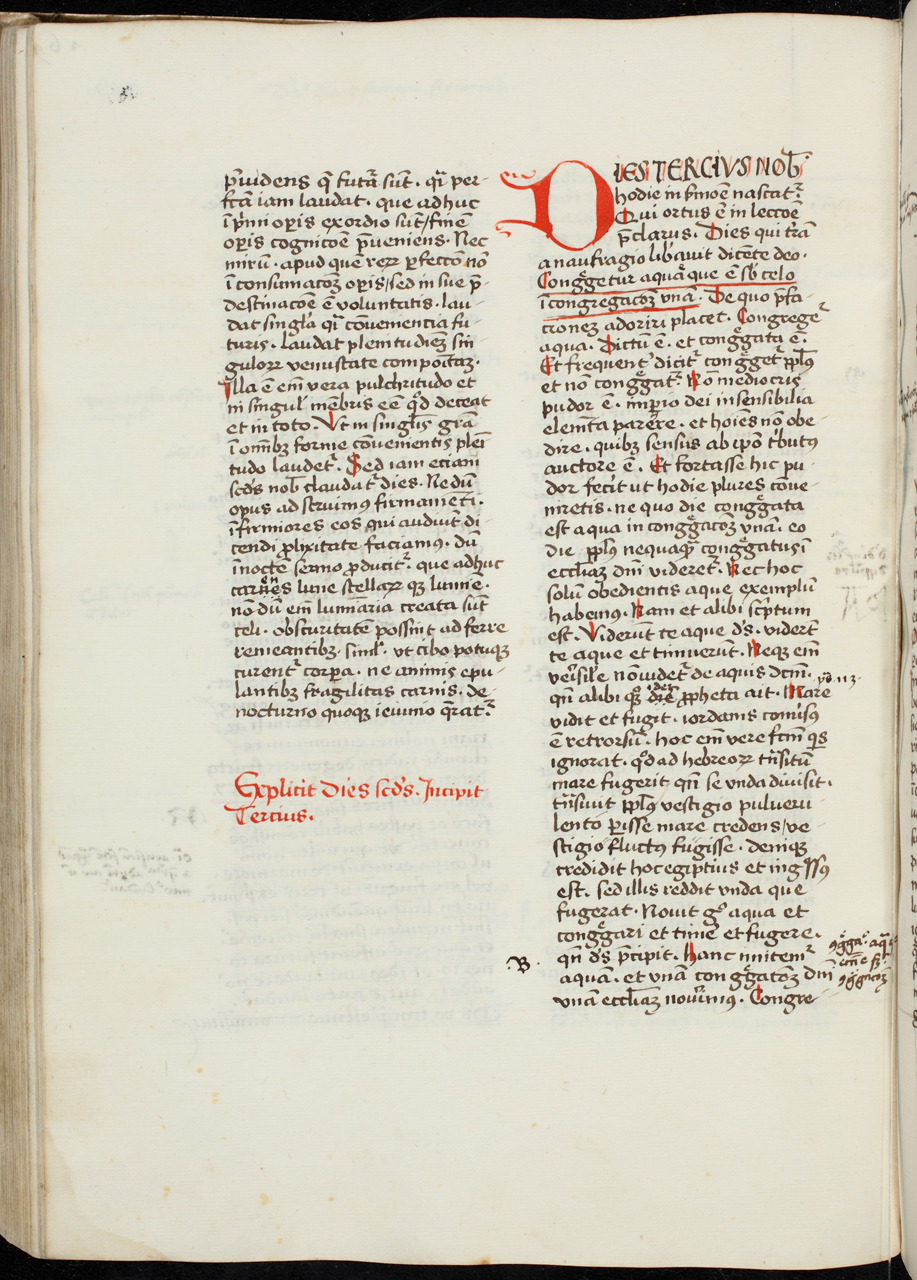 p̄uidens q̄ futā sūt · qr̄ per-
fc̄a iam laudat · que adhuc
ī pͥmi oꝑis exordio sūt / finē
oꝑis cognicōe p̄ueniens · Nec
mirū · apud quē reꝝ ꝑfeccō nō
ī consumacōꝫ oꝑis / sed in sue p̄-
destinacōe ē voluntatis · lau-
dat singl̓a qr̄ cōuenientia fu-
turis · laudat plenitudinēꝫ sin-
guloꝝ venustate compoītaꝫ ·
Illa ē em̄ vera pulchritudo et
in singul̓ mēbris eē qd̓ deceat
et in toto · Vt in singl̓is grā
ī om̄ibꝫ forme cōuenientis plēi
tudo laudetᷣ · Sed iam eciam
scd̓s nob̄ claudatᷣ dies · Ne dū
opus adstruimꝰ firmamēti ·
īfirmiores eos qui audiūt di-
cendi ꝓlixitate faciamꝰ · dū
ī noctē sermo ꝓducitᷣ · que adhuc
carēns lune stellaꝝ qꝫ lumīe ·
nō dū em̄ lumīaria creata sūt
celi · obscuritatē possint adferre
remeantibꝫ · simľ · vt cibo potuqꝫ
curentᷣ corꝑa · ne animis epu-
lantibꝫ fragilitas carnis · de
nocturno quoqꝫ ieiunio q̄ratᷣ
Explicit dies scd̓s · Incipit
Tercius ·
DIES TERCIVS NOB̄
hodie in ẜmōe nascatᷣ
Qui ortus ē in leccōe
p̄clarus · Dies qui tr̄ā
a naufragio libauit dicēte deo ·
Congͣgetur aqua que ē sb̓ celo
ī congregacōꝫ vnā · De quo p̄fa-
cionēꝫ adoriri placet · Congregeᷣ
aqua · Dictū ē · et congͣgata ē ·
Et frequentᷣ dicitᷣ congͣgetᷣ ppl̓s
et nō congͣgatᷣ · Nō mediocris
pudor ē · imꝑio dei insensibilia
elem̄ta parēre · et hoīes nō obe-
dire · quibꝫ sensus ab ip̄o tͥbutꝰ
auctore ē · Et fortasse hic pu-
dor fecit ut hodie plures cōue-
niretis · ne quo die congͣgata
est aqua in congͣgacōꝫ vnā · eo
die ppl̓s nequaqͣ congͣgatus ī
eccl̓iaꝫ dn̄i videretᷣ · Nec hoc
solū obedientis aque exemplū
habemꝰ · Nam et alibi scͥptum
est · Viderūt te aque dˢ · viderūt
te aque et timuerūt · Neqꝫ em̄
veꝛisil̓e nō videtᷣ de aquis dictū ·
qn̄ alibi qꝫ ꝓpheta ait · Mare
vidit et fugit · iordanis conu̓sꝰ
ē retrorsū · hoc em̄ vere fcm̄ qͥs
ignorat · qd̓ ad hebreoꝝ trn̄situ
mare fugerit qn̄ se vnda diuisit ·
trn̄siuit ppl̓s vestigio pulueru-
lento ꝑisse mare credens / ve-
stigio fluctꝰ fugisse · deniqꝫ
credidit hoc egiptius et ingͥssꝰ
est · sed illis reddit vnda que
fugerat · Nouit gͦ aqua et
congͣgari et timē et fugere ·
qn̄ dˢ p̄cipit · Hanc imitemᷣ
aquā · et vnā congͣgacōꝫ dn̄i
vnā eccl̓iaꝫ nou̓imꝰ · Congre-
ps · 113 ·
B ·